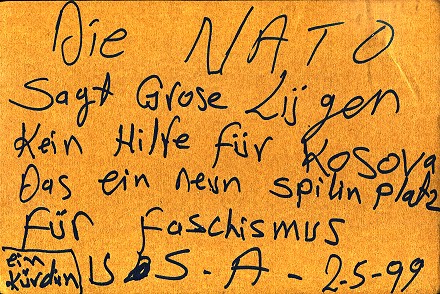 Die NATO
Sagt Grose Lügen
Kein Hilfe für Kosova
Das ein neun spilin platz
Für Faschismus
ein
Kürdin
U S - A - 2-5-99